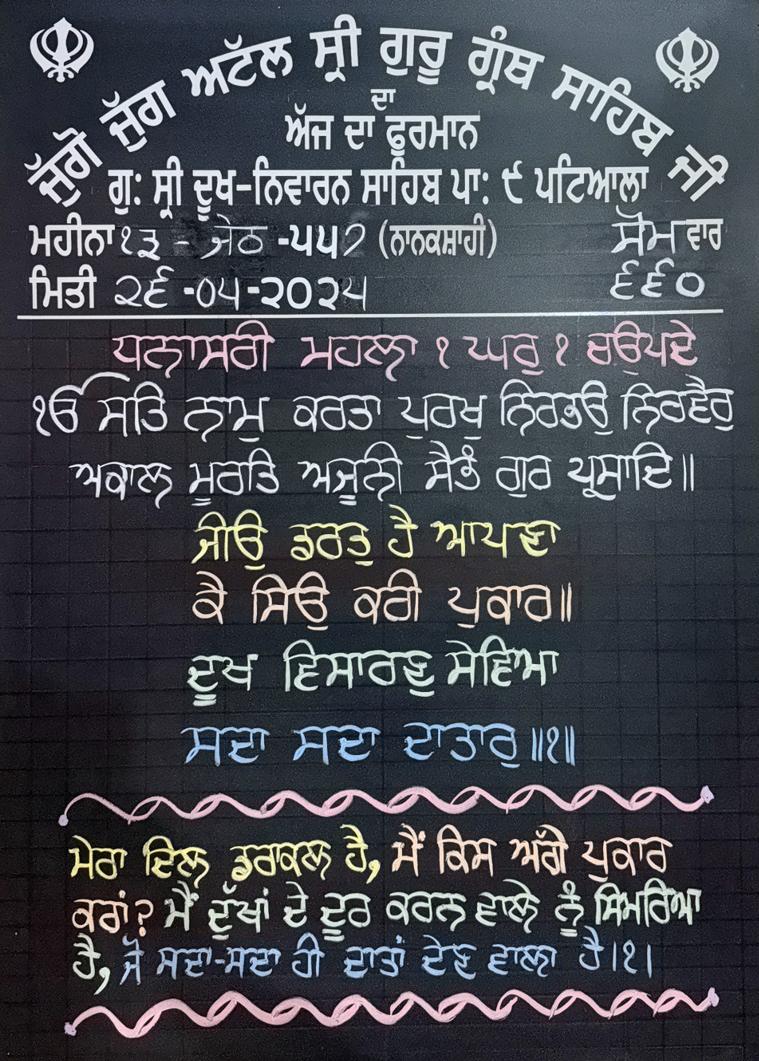 ਜੁੱਗੋ ਜੁੱਗ ਅਟੱਲ ਸ੍ਰੀ ਗੁਰੂ ਗ੍ਰੰਥ ਸਾਹਿਬ ਜੀ
ਦਾ
ਅੱਜ ਦਾ ਫੁਰਮਾਨ
ਗੁ: ਸ੍ਰੀ ਦੂਖ-ਨਿਵਾਰਨ ਸਾਹਿਬ ਪਾ: ੯ ਪਟਿਆਲਾ
ਮਹੀਨਾ ੧੩ - ਜੇਠ -੫੫੭ (ਨਾਨਕਸ਼ਾਹੀ) ਸੋਮ ਵਾਰ
ਮਿਤੀ ੨੬ -੦੫-੨੦੨੫ ੬੬੦
ਧਨਾਸਰੀ ਮਹਲਾ ੧ ਘਰੁ ੧ ਚਉਪਦੇ
ੴ ਸਤਿ ਨਾਮੁ ਕਰਤਾ ਪੁਰਖੁ ਨਿਰਭਉ ਨਿਰਵੈਰੁ
ਅਕਾਲ ਮੂਰਤਿ ਅਜੂਨੀ ਸੈਭੰ ਗੁਰ ਪ੍ਰਸਾਦਿ॥
ਜੀਉ ਡਰਤੁ ਹੈ ਆਪਣਾ
ਕੈ ਸਿਉ ਕਰੀ ਪੁਕਾਰ॥
ਦੂਖ ਵਿਸਾਰਣੁ ਸੇਵਿਆ
ਸਦਾ ਸਦਾ ਦਾਤਾਰੁ॥੧॥
ਮੇਰਾ ਦਿਲ ਡਰਾਕਲ ਹੈ, ਮੈਂ ਕਿਸ ਅੱਗੇ ਪੁਕਾਰ
ਕਰਾਂ? ਮੈਂ ਦੁੱਖਾਂ ਦੇ ਦੂਰ ਕਰਨ ਵਾਲੇ ਨੂੰ ਸਿਮਰਿਆ
ਹੈ, ਜੋ ਸਦਾ-ਸਦਾ ਹੀ ਦਾਤਾਂ ਦੇਣ ਵਾਲਾ ਹੈ।੧।